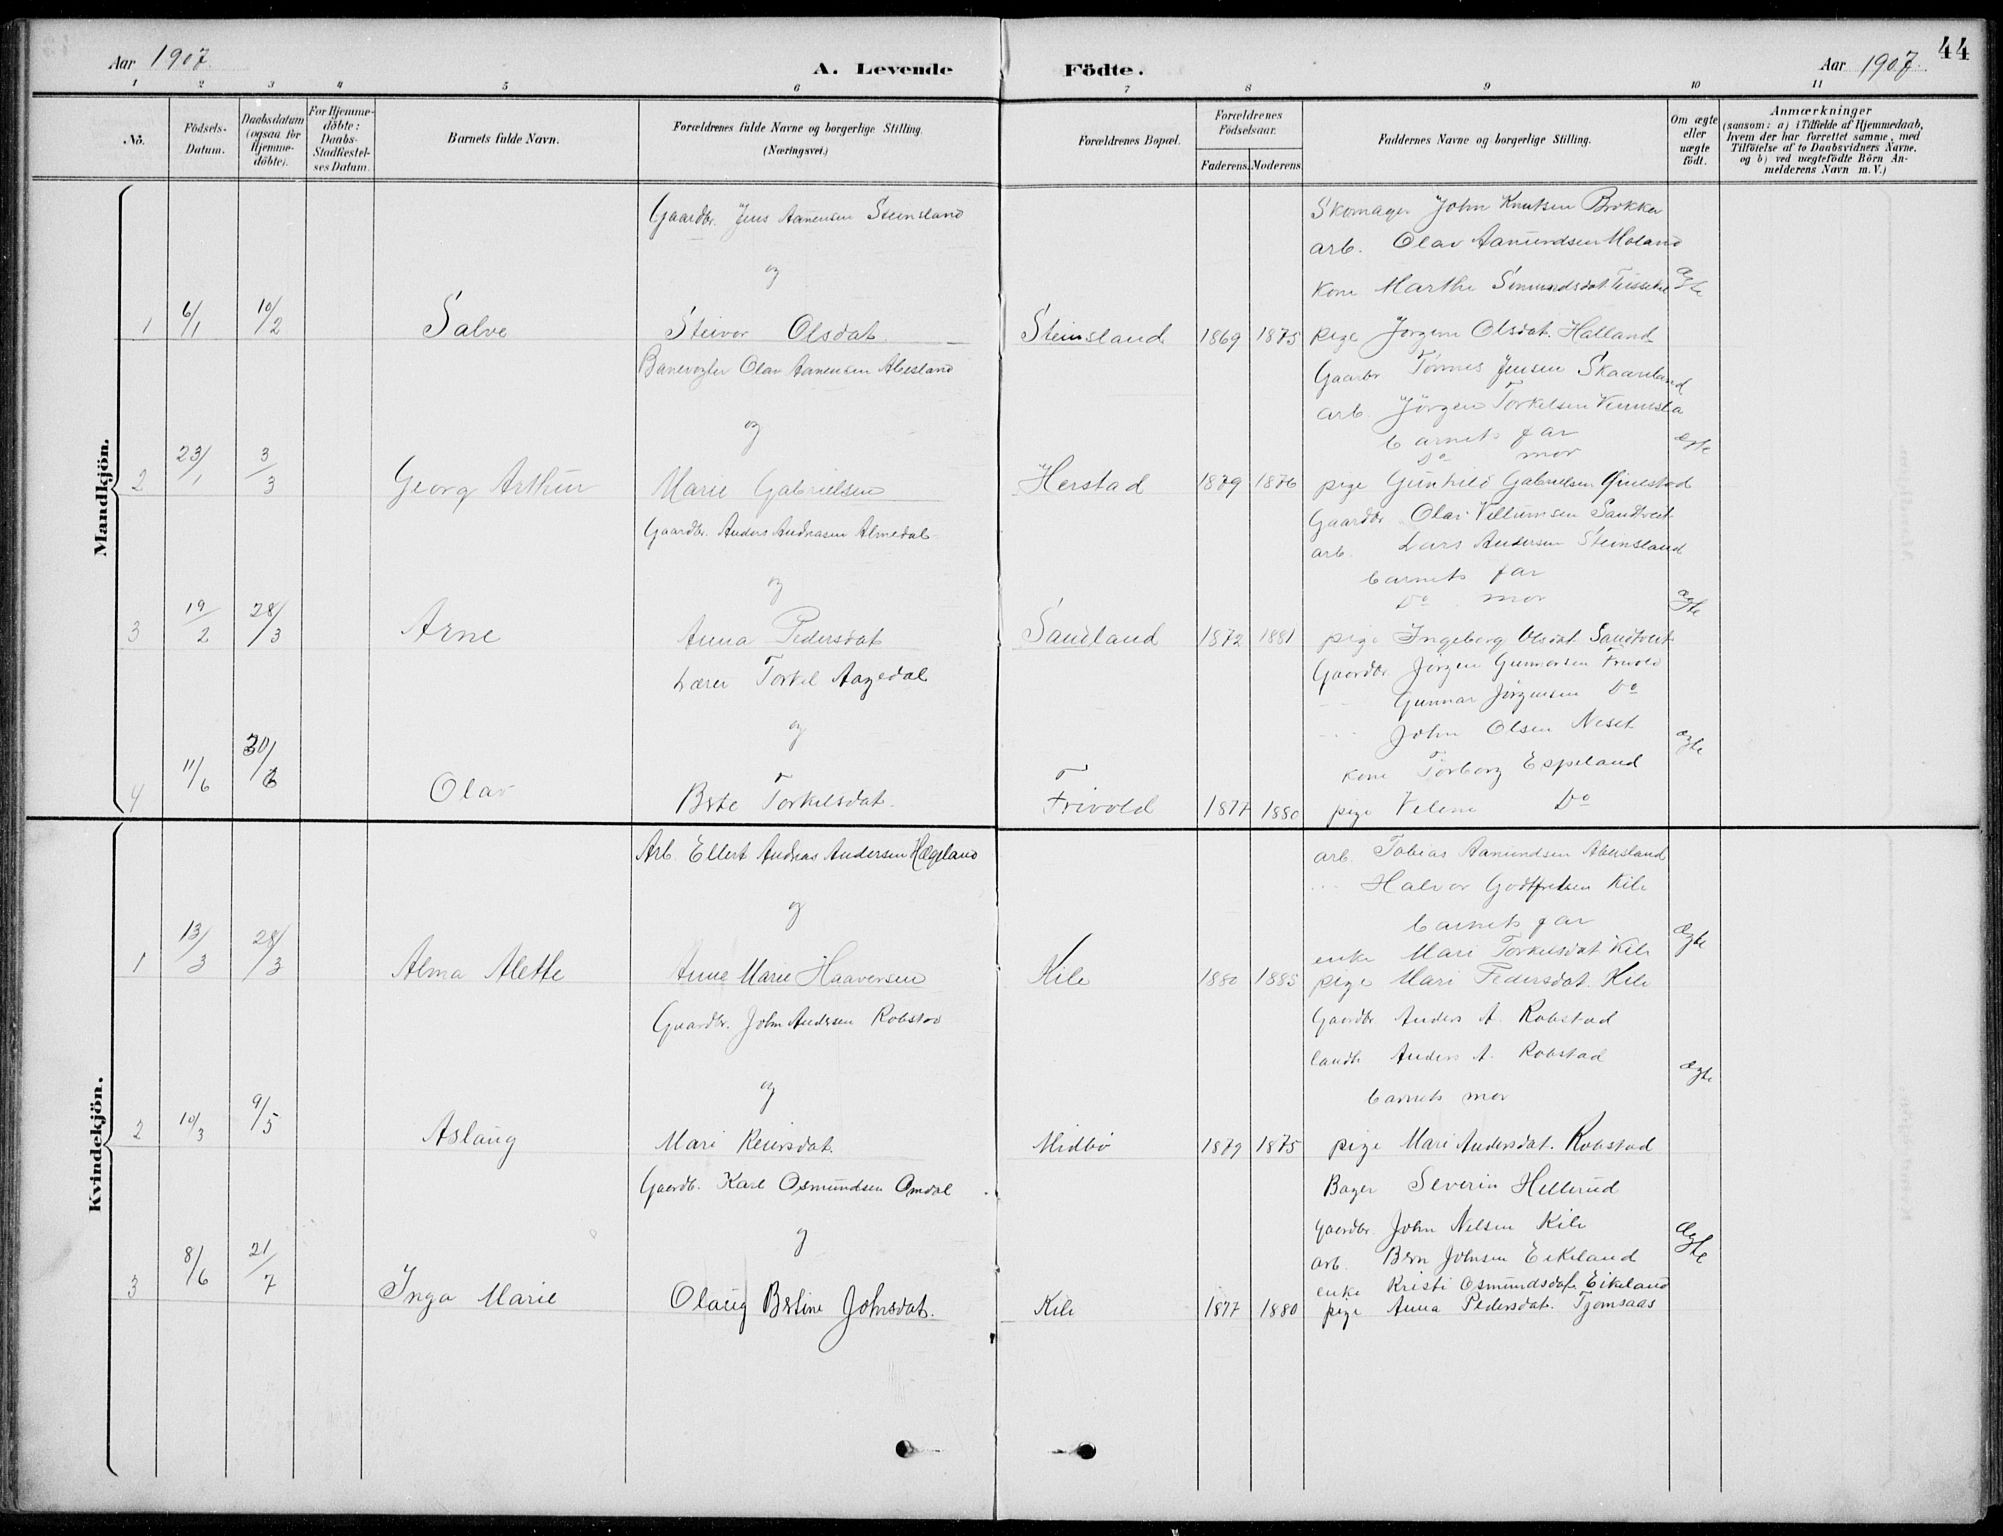 Aar 1907.
A. Levende Födte.
Aar 1907.
44
1 2 3 4 5 6 7 8 9 10 11
No.
Födsels-Datum.
Daabsdatum (ogsaa for Hjemme-döbte).
For Hjemme-döbte: Daabs-Stadfæstel-ses Datum.
Barnets fulde Navn.
Forældrenes fulde Navne og borgerlige Stilling. (Næringsvei.)
Forældrenes Bopæl.
Forældrenes Födselsaar.
Faderens. Moderens.
Faddernes Navne og borgerlige Stilling.
Om ægte eller uægte födt.
Anmærkninger
(saasom: a) i Tilfælde af Hjemmedaab, hvem der har forrettet samme, med Tilföielse af to Daabsvidners Navne. og b) ved uægtefödte Börn An-melderens Navn m. V.)
Mandkjön.
Gaardbr. Jens Aanensen Steinsland
og
1 6/1 10/2 Salve Steivor Olsdat. Steinsland 1869 1875
Skomager John Knutsen Brokker
arb. Olav Aamundsen Moland
kone Marthe
pige Jørgine Olsdat. Halland
ægte
Banevogter Olav Aanensen Abesland
og
2 23/1 3/3 Georg Arthur Marie Gabrielsen Herstad 1879 1876
Gaarbr Tønnes Jensen Skaareland
arb. Jörgen Torkelsen Vennesla
barnets far
Do mor
pige Gunhild Gabrielsen
ægte
Gaardbr. Anders Andreasen Almedal
og
3 19/2 28/3 Arne Anna Pedersdat Sandland 1872 1881
Gaardbr Olav Villumsen Sandtveit
arb. Lars Andersen Steinsland
barnets far
Do mor
pige Ingeborg Olsdat Sandtveit
ægte
Lærer Torkel Aagedal
og
4 11/6 30/6 Olav Berte Torkelsdat. Frivold 1877 1880
Gaardbr. Jørgen Gunnarsen Frivold
- - Gunnar Jørgensen Do
- - - John Olsen Neset
kone Torborg Espeland
pige Velene Do
ægte
Kvindekjön.
Arb. Ellert Andreas Andersen Hægeland
og
1 13/3 28/3 Alma Alette Anne Marie Haaversen Kile 1880 1885
arb. Tobias Aamundsen Abesland
- - - Halvor Godtfredsen Kile
barnets far
enke Mari Torkelsdat Kile
pige Mari Pedersdat. Kile
ægte
Gaardbr. John Andersen Robstad
og
2 10/3 9/5 Aslaug Mari Reiersdat. Midbø 1879 1875
Gaardbr Anders A. Robstad
landh Anders A. Robstad
barnets mor
pige Mari Andersdat. Robstad
ægte
Gaardb. Karl Osmundsen Omdal
og
3 8/6 21/7 Inga Marie Olaug Bertine Johnsdat. Kile 1877 1880
Bager Severin Hellerud
Gaardbr. John Nelsen Kile
arb. Bern Johnsen Eikeland
enke Kristi Osmundsdat Eikeland
pige Anna Pedersdat. Tjomsaas
ægte